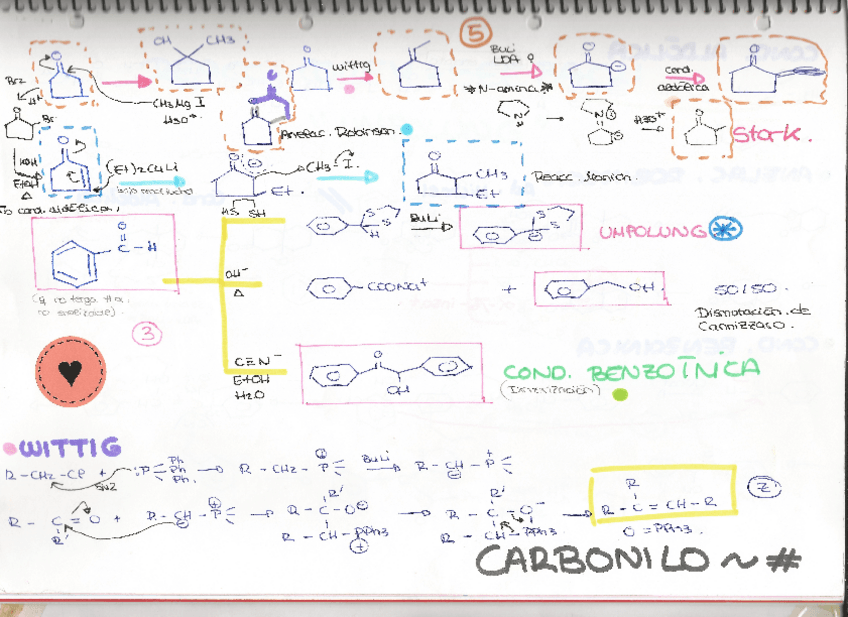 5
OH CH3
O
O
Wittig
BuLi
LDA
O
cond.
aldólica
O
Br2
H+
CH3MgI
H3O+
*N-amina*
N
N
H3O+
O
Stork.
O
Br
Anelac. Robinson
KOH
EtOH
Δ
O
(Et)2CuLi
O
Et.
CH3-I
O
CH3
Et
Reacc.
HS SH
O
C-H
S S
H
BuLi
S S
UMPOLUNG
OH-
Δ
COONa+
+
OH
50/50.
Dismutación de
Cannizzaro.
3
C≡N-
EtOH
H2O
O
OH
COND. BENZOÍNICA
WITTIG
R-CH2-Cl + :P Ph Ph Ph
SN2
R-CH2-P+
BuLi
R-CH-P+
R-C=O + R-CH-P+
R'
R'
R-C-O-
R-CH-PPh3
R'
R-C-O-
R-CH-PPh3
R
R-C=CH-R
O=PPh3.
Z
CARBONILO ~ #